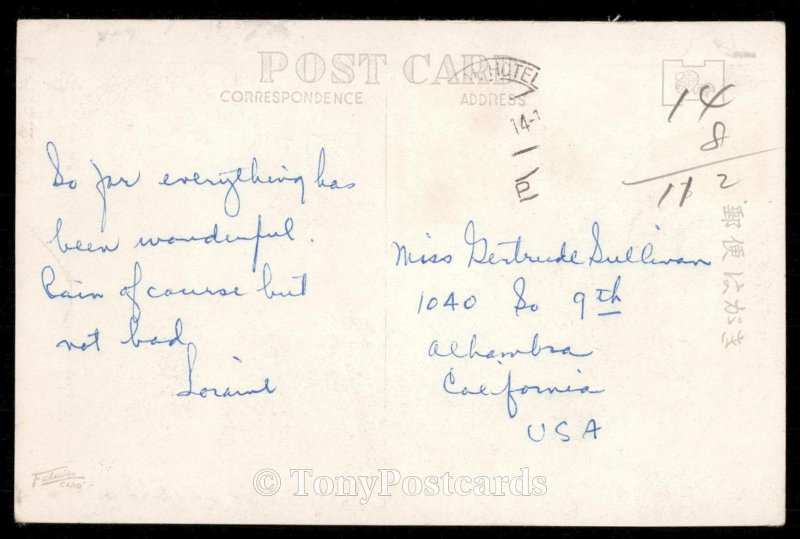 POST CARD
CORRESPONDENCE
ADDRESS
HOTEL
14-
P
14
8
112
So far everything has
been wonderful.
Rain of course but
not bad
Loraine
Miss Gertrude Sullivan
1040 So 9th
Alhambra
California
USA
郵便はがき
CARD
© TonyPostcards